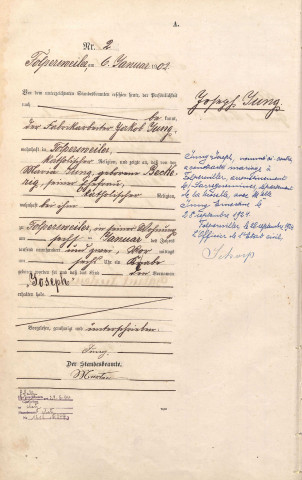 A.
Nr. 2
Folpersweiler, am 6. Januar 1902.
Vor dem unterzeichneten Standesbeamten erschien heute, der Persönlichkeit
nach
be kannt,
der Fabrikarbeiter Jakob Jung,
wohnhaft in Folpersweiler,
katholischer Religion, und zeigte an, daß von der
Maria Jung, geborenen
seiner Ehefrau,
katholischer Religion,
wohnhaft bei ihm
zu Folpersweiler, in seiner Wohnung
am sechsten Januar des Jahres
tausend neunhundert und zwei, Vor mittags
um sechs Uhr ein Knabe
geboren worden sei und daß das Kind den Vornamen
"Joseph"
erhalten habe.
Vorgelesen, genehmigt und unterschrieben
Jung
Der Standesbeamte.
Joseph Jung.
Jung Joseph, nommé ci-contre
a contracté mariage à
Folpersviller, arrondissement
de Sarreguemines, département
de la Moselle, avec
Jung Ernestine le
28 septembre 1921.
L'Officier de l'Etat civil